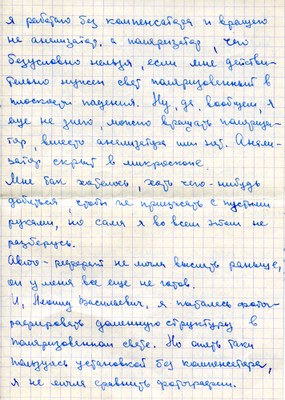 Я работаю без компенсатора и вращаю
не анализатор, а поляризатор, чего
безусловно нельзя, если мне действи-
тельно нужен свет поляризованный в
плоскости падения. Ну, да, вообщем, я
еще не знаю, можно вращать поляриза-
тор, вместо анализатора или нет. Анали-
затор скрыт в микроскопе.
Мне так хотелось, хоть чего-нибудь
добиться, чтобы не приезжать с пустыми
руками, но сама я во всем этом не
разберусь.
Авто-реферат не могла выслать раньше,
он у меня все еще не готов.
И, Леонид Васильевич, я пыталась фото-
графировать доменную структуру в
поляризованном свете. Но опять таки
пользуясь установкой без компенсатора,
я не могла сравнить фотографии.